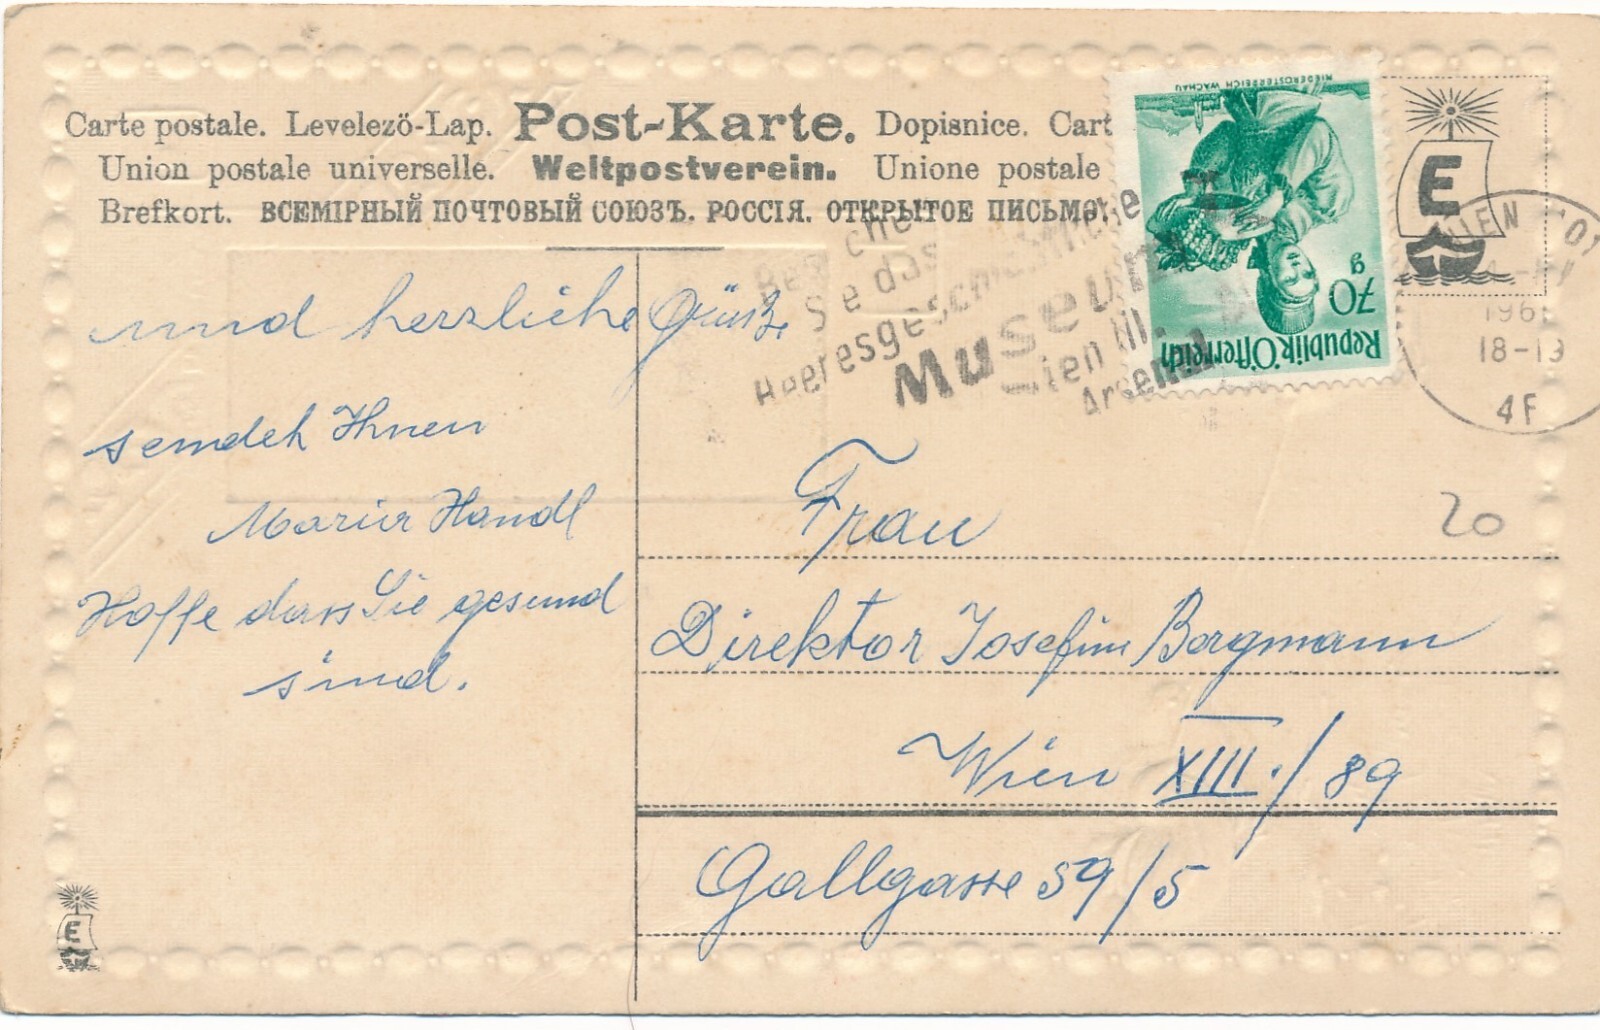 Carte postale. Levelező-Lap. Post-Karte. Dopisnice. Cart
Union postale universelle. Weltpostverein. Unione postale
Brefkort. ВСЕМІРНЫЙ ПОЧТОВЫЙ СОЮЗЪ. РОССІЯ. ОТКРЫТОЕ ПИСЬМО
NIEDERÖSTERREICH WACHAU
70 g
Republik Österreich
E
WIEN 101
196
18-19
4F
che
Sie das
Heeresgeschichtliche
Museum
Wien III
Arsenal
und herzliche Grüße
sendet Ihnen
Maria Handl
Hoffe dass Sie gesund
sind.
20
Frau
Direktor Josefine Bergmann
Wien XIII./89
Gallgasse 59/5
E